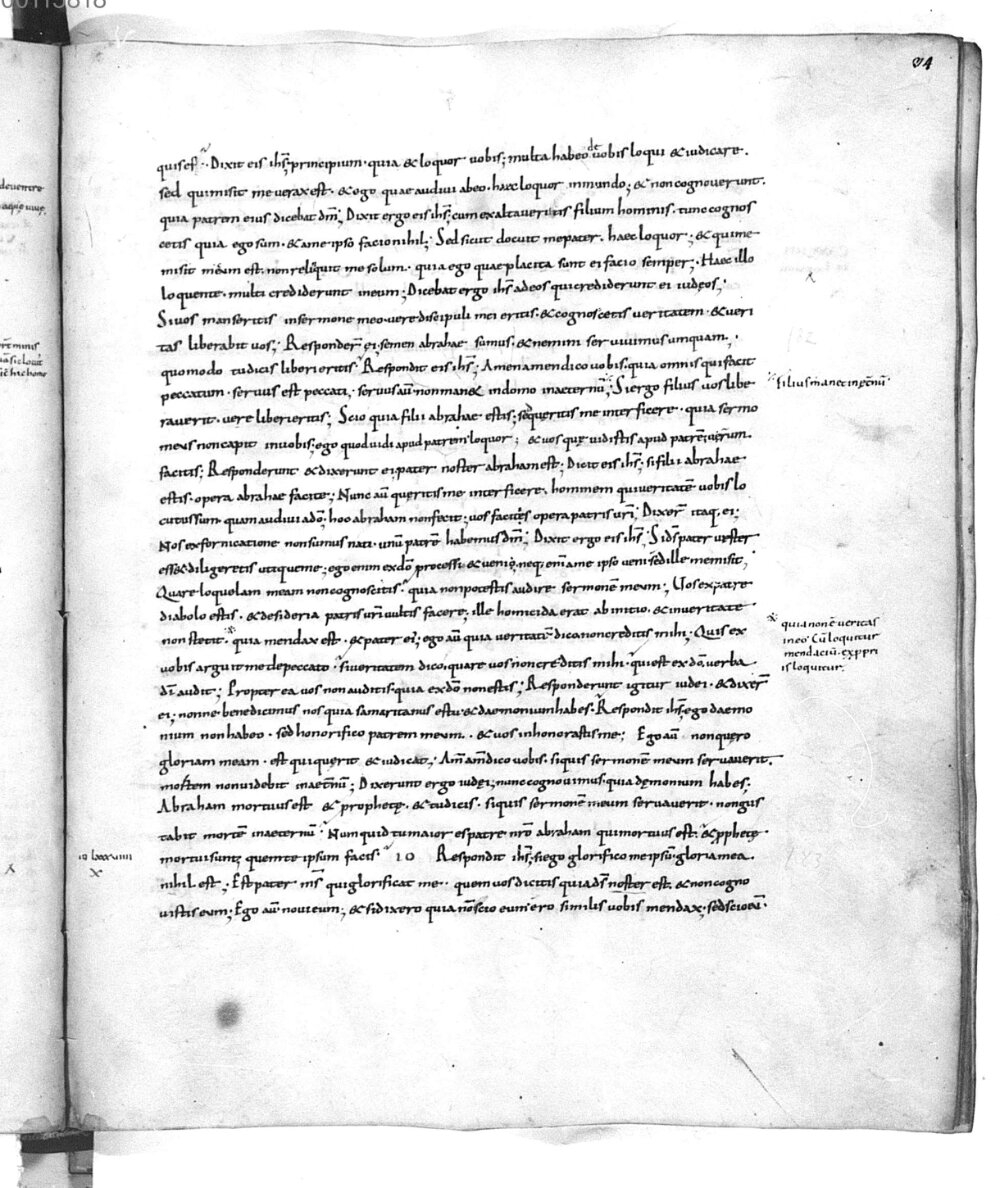 94
quises· Dixit eis ihs; principium· quia & loquor uobis; multa habeo de uobis loqui & iudicare·
sed qui misit me uerax est· & ego quae audiui ab eo· haec loquor in mundo; & non cognouerunt·
quia patrem eius dicebat dm̄; Dixit ergo eis ihs; cum exaltaueritis filium hominis· tunc cognos
cetis quia ego sum· & a me ipso facio nihil; Sed sicut docuit me pater· haec loquor; & qui me
misit mecum est· non reliquit me solum· quia ego quae placita sunt ei facio semper; Haec illo
loquente· multi crediderunt in eum; Dicebat ergo ihs ad eos qui crediderunt ei iudeos;
Si uos manseritis in sermone meo· uere discipuli mei eritis· & cognoscetis ueritatem· & ueri
tas liberabit uos; Responder̄ ei; semen abrahae sumus· & nemini seruiuimus umquam;
quomodo tu dicis liberi eritis Respondit eis ihs; Amen amen dico uobis· quia omnis qui facit
peccatum· seruus est peccati; seruus aū non man& in domo in aeternū; Si ergo filius uos libe
filius manet in aet̄nū
rauerit· uere liberi eritis; Scio quia filii abrahae estis; sed queritis me interficere· quia sermo
meus non capit in uobis; ego quod uidi apud patrem loquor; & uos quę uidistis apud patrē uestrum·
facitis; Responderunt & dixerunt ei· pater noster abraham est; Dicit eis ihs; si filii abrahae
estis· opera abrahae facite; Nunc aū queritis me interficere· hominem qui ueritatē uobis lo
cutus sum· quam audiui a dō; hoc abraham non fecit· uos facitis opera patris uri; Dixer̄ itaq· ei;
Nos ex fornicatione non sumus nati· unū patrē habemus dm̄; Dixit ergo eis ihs; Si ds pater uester
ess& diligeretis utique me; ego enim ex dō processi & ueni; neq· enī a me ipso ueni sed ille me misit;
Quare loquelam meam non cognoscitis· quia non potestis audire sermonē meum; Uos ex patre
diabolo estis· & desideria patris uri uultis facere; ille homicida erat ab initio· & in ueritate
non stetit· quia mendax est· & pater ei; ego aū quia ueritatē dico non creditis mihi; Quis ex
quia non ē ueritas
in eo· Cū loquitur
mendaciū· ex ppri
is loquitur;
uobis arguit me de peccato· si ueritatem dico· quare uos non creditis mihi· qui est ex dō· uerba
dī audit; Propterea uos non auditis· quia ex dō non estis; Responderunt igitur iudei· & dixer̄
ei; nonne benedicimus nos quia samaritanus es tu & daemonium habes· Respondit ihs; ego daemo
nium non habeo· sed honorifico patrem meum· & uos inhonorastis me; Ego aū non quero
gloriam meam· est qui querit & iudicat; Am̄ am̄ dico uobis· siquis sermonē meum seruauerit·
mortem non uidebit in aet̄nū; Dixerunt ergo iudęi; nunc cognouimus· quia dęmonium habes;
Abraham mortuus est & prophetę· & tu dicis· siquis sermonē meum seruauerit· non gus
tabit mortē in aeternū· Numquid tu maior es patre nrō abraham qui mortuus est· & pphetę·
mortui sunt; quem te ipsum facis· 10 Respondit ihs; si ego glorifico me ipsū· gloria mea·
lxxxuiiii
x
nihil est; Est pater ms̄ qui glorificat me· quem uos dicitis quia ds noster est· & non cogno
uistis eum; Ego aū noui eum; & si dixero quia nōscio eum· ero similis uobis mendax· sed scio eū·